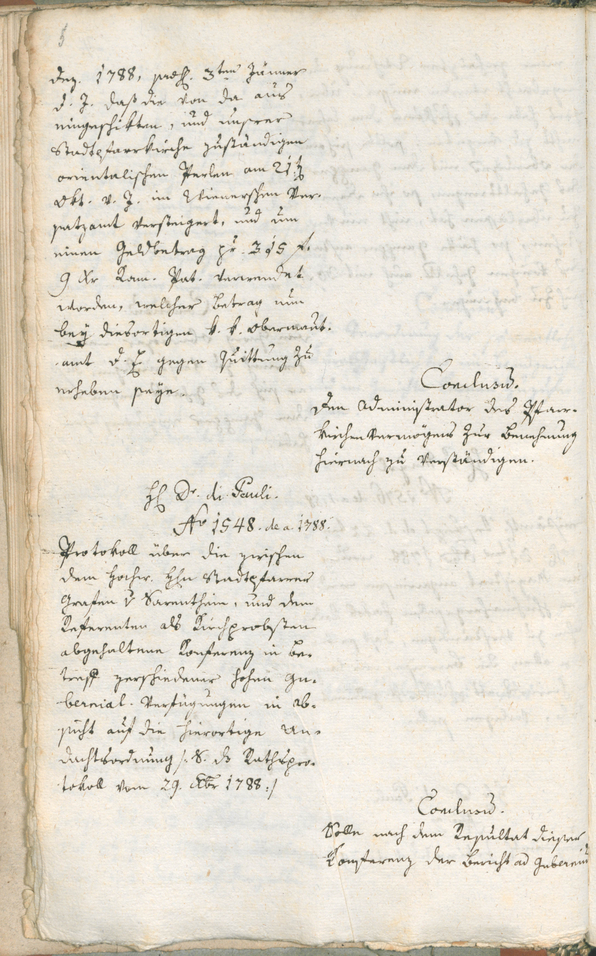 Dez. 1788, präs. 3ten Jänner
d. J. daß die von da aus
eingeschikten, und unserer
Stadtpfarrkirche zuständigen
orientalischen Perlen am 21t
Okt. v. J. im Wienerschen Ver-
satzamt versteigert, und um
einen Geldbetrag pr. 315 f.
9 Xr Kon. verwendet
worden, welcher Betrag nun
bey diesortigen k. k. Obermaut-
amt gegen Quittung zu
erheben seye.
Conclusum.
Den Administrator des Pfarr-
kirchenvermögens zur Benehmung
hiernach zu verständigen.
H. Dr. di Pauli.
No 1548. de a. 1788.
Protokoll über die zwischen
dem hochw. Hhn Stadtpfarrer
Grafen v Sarenthein, und dem
Referenten als Kirchprobsten
abgehaltene Konferenz in Be-
treff verschiedener hohen Gu-
bernial-Verfügungen in Ab-
sicht auf die hierortige An-
dachtsordnung /: S. das Rathspro-
tokoll vom 29. Xbr 1788 :/
Conclusum.
Solle nach dem Resultat dieser
Konferenz der Bericht ad Gubernium